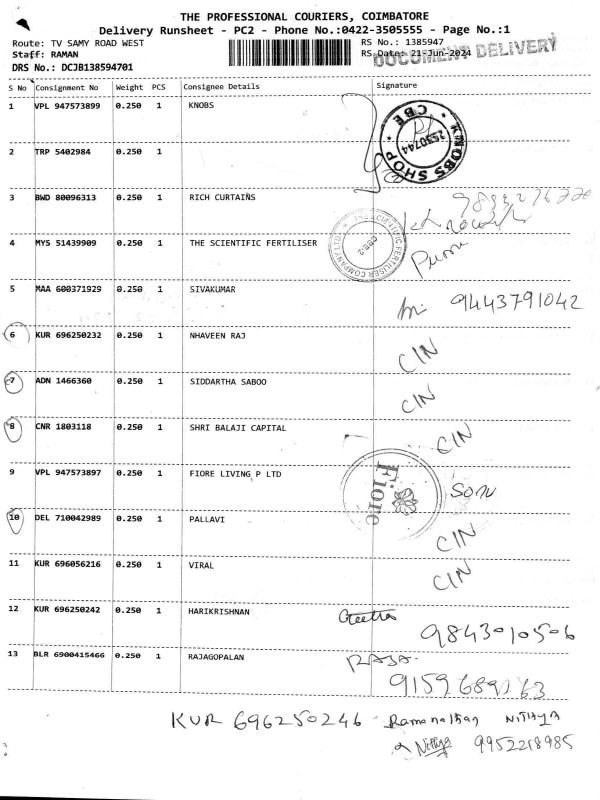 THE PROFESSIONAL COURIERS, COIMBATORE
Delivery Runsheet - PC2 - Phone No.:0422-3505555 - Page No.:1
Route: TV SAMY ROAD WEST
Staff: RAMAN
DRS No.: DCJB138594701
RS No.: 1385947
RS Date: 21-Jun-2024
DOCUMENT DELIVERY
S No Consignment No Weight PCS Consignee Details Signature
1 VPL 947573899 0.250 1 KNOBS
KNOBS SHOP CBE 2530744
2 TRP 5402984 0.250 1
3 BWD 80096313 0.250 1 RICH CURTAINS
4 MYS 51439909 0.250 1 THE SCIENTIFIC FERTILISER
THE SCIENTIFIC FERTILISER COMPANY LTD CBE-2
5 MAA 600371929 0.250 1 SIVAKUMAR 9443791042
6 KUR 696250232 0.250 1 NHAVEEN RAJ CIN
7 ADN 1466360 0.250 1 SIDDARTHA SABOO CIN
8 CNR 1803118 0.250 1 SHRI BALAJI CAPITAL CIN
9 VPL 947573897 0.250 1 FIORE LIVING P LTD Fiore Sonu
10 DEL 710042989 0.250 1 PALLAVI CIN
11 KUR 696056216 0.250 1 VIRAL CIN
12 KUR 696250242 0.250 1 HARIKRISHNAN Geetha 9843010506
13 BLR 6900415466 0.250 1 RAJAGOPALAN RAJA
KUR 696250246 Ramanathan NITHYA
Nithya 9952218985